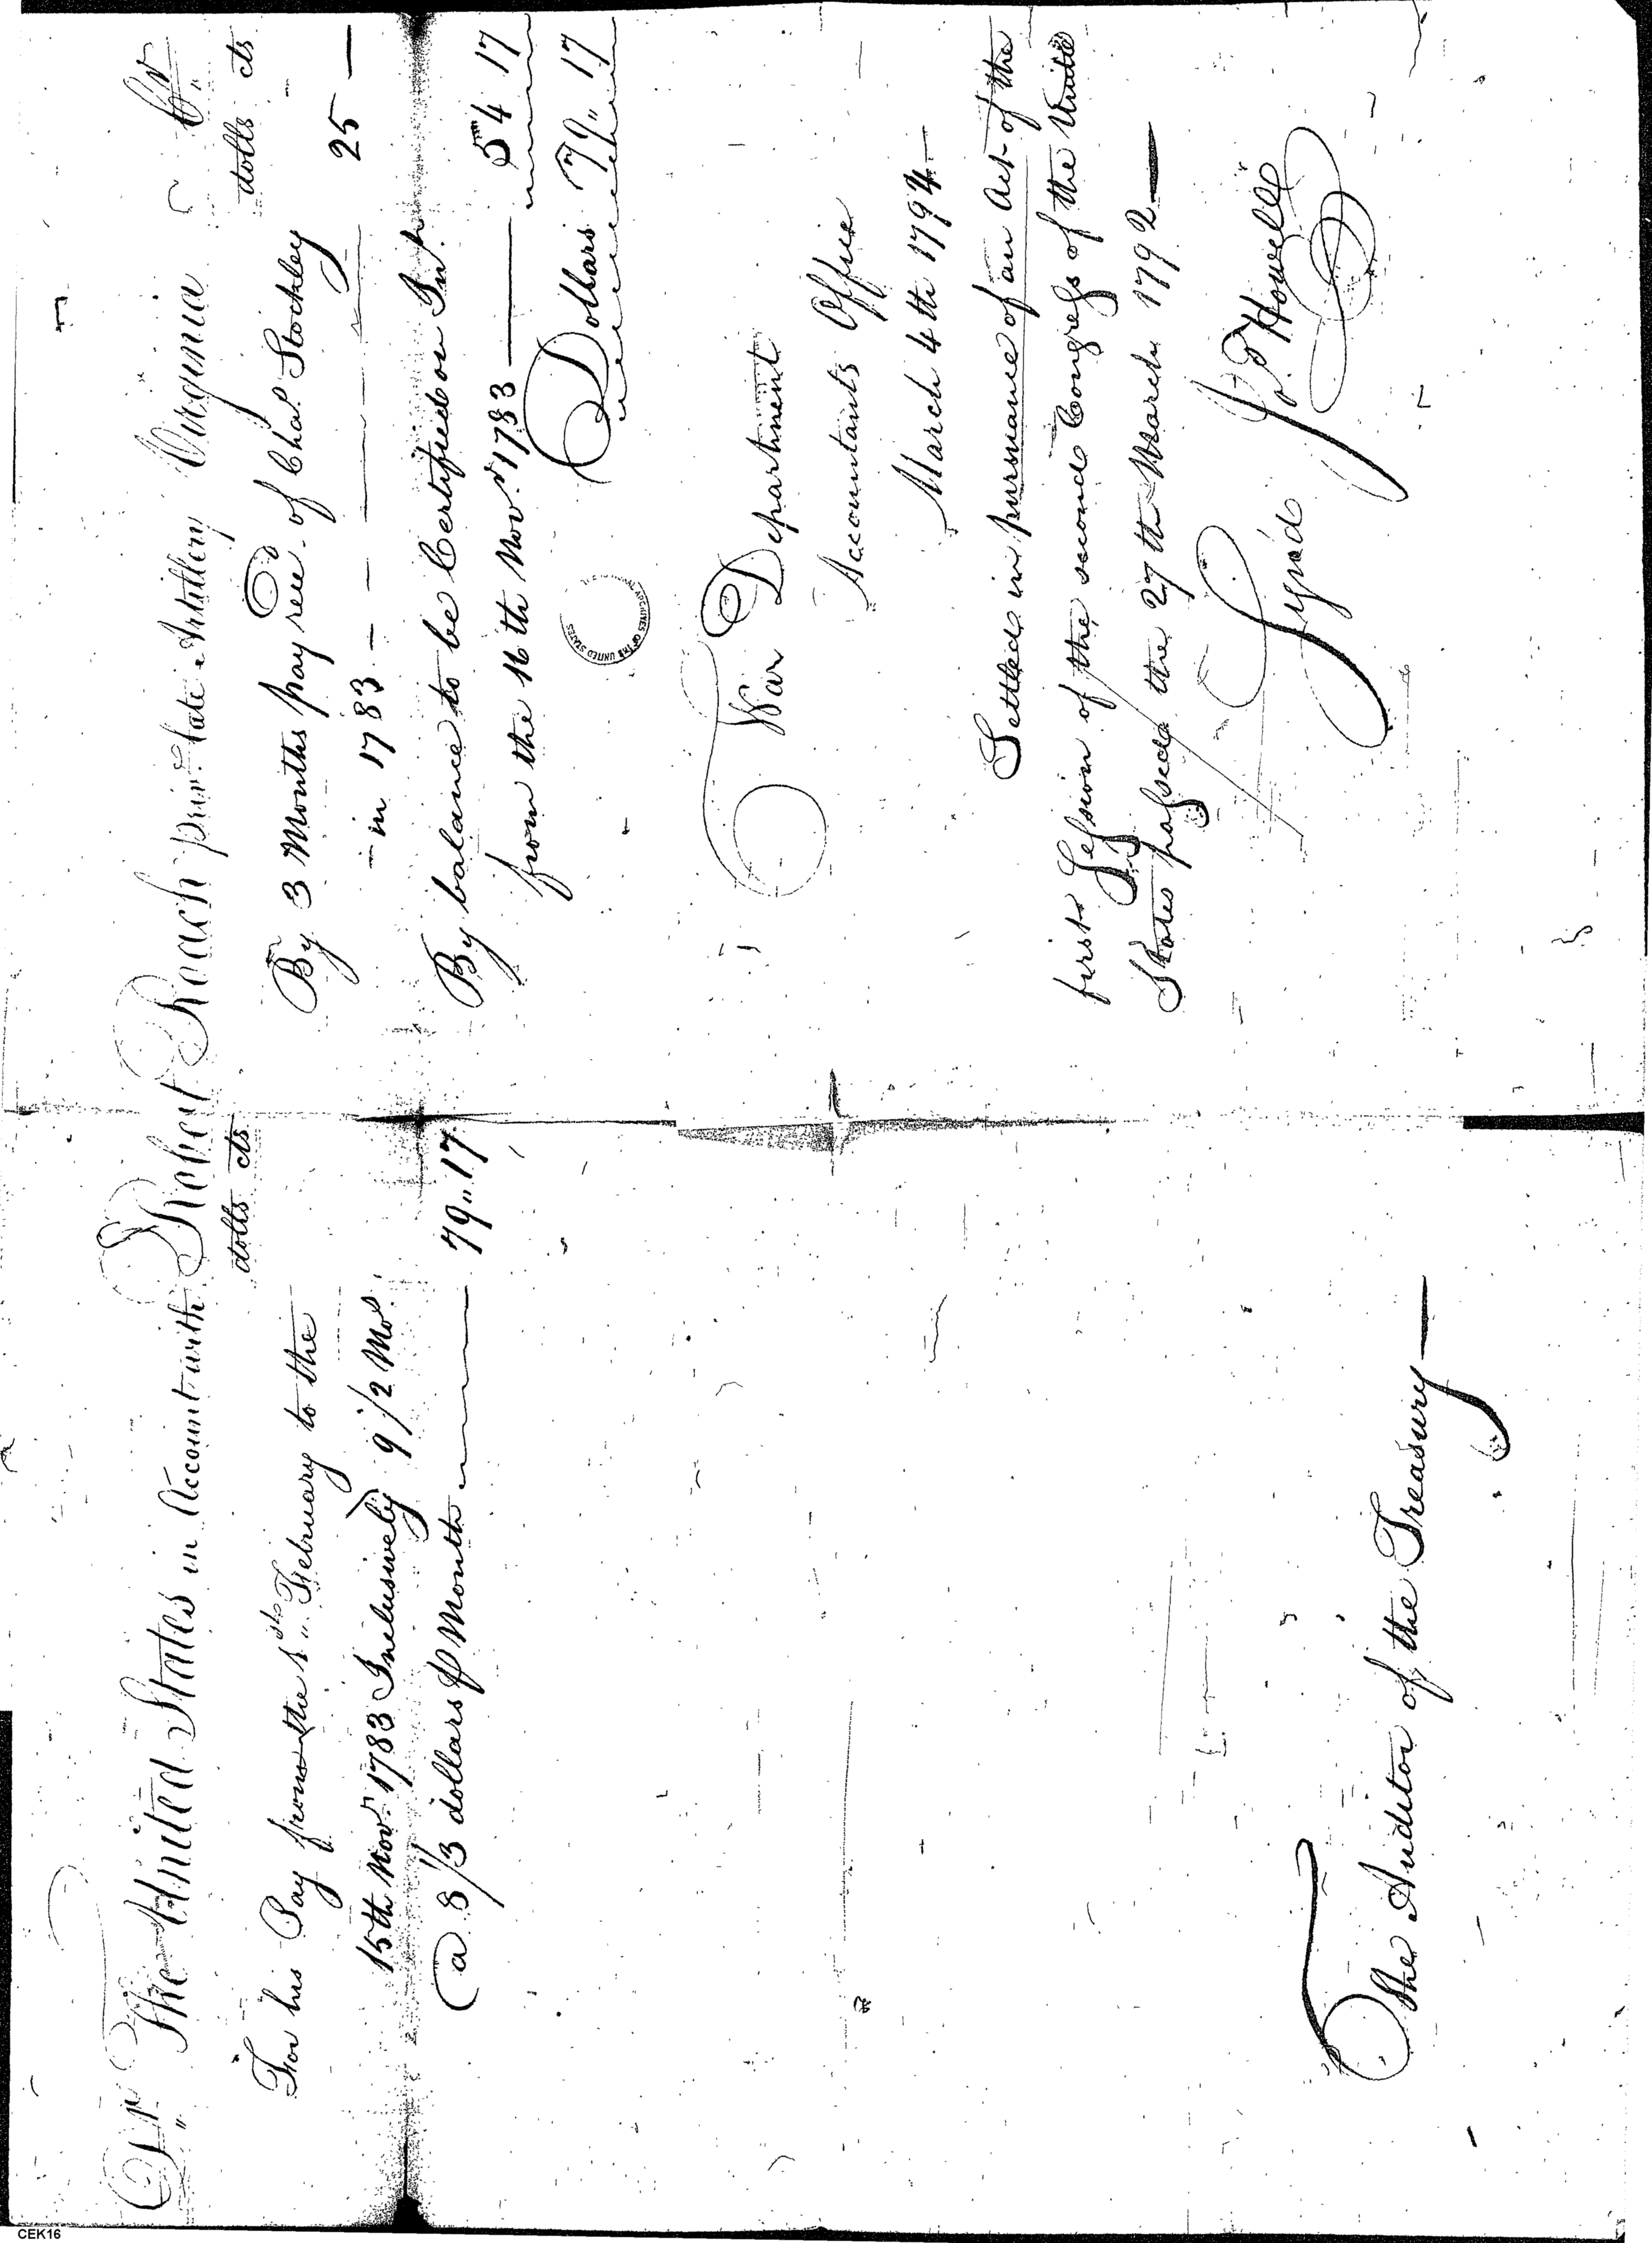 Dr The United States in Account with Robert Roach private Artillery Virginia Cr
dolls cts
For his Pay from the 1st February to the
15th Novr 1783 Inclusively 9 1/2 Mos
@ 8 1/3 dollars ⅌ Month 79"17
The Auditor of the Treasury
dolls cts
By 3 Months pay recd of Chas Stockley
in 1783 — 25 —
By balance to be Certified on Int
from the 16th Novr 1783 — 54 17
Dollars 79" 17
ARCHIVES OF THE UNITED STATES
War Department
Accountants Office
March 4th 1794
Settled in pursuance of an Act of the
first Session of the second Congress of the United
States passed the 27th March 1792 —
Signd Jos Howell
CEK16